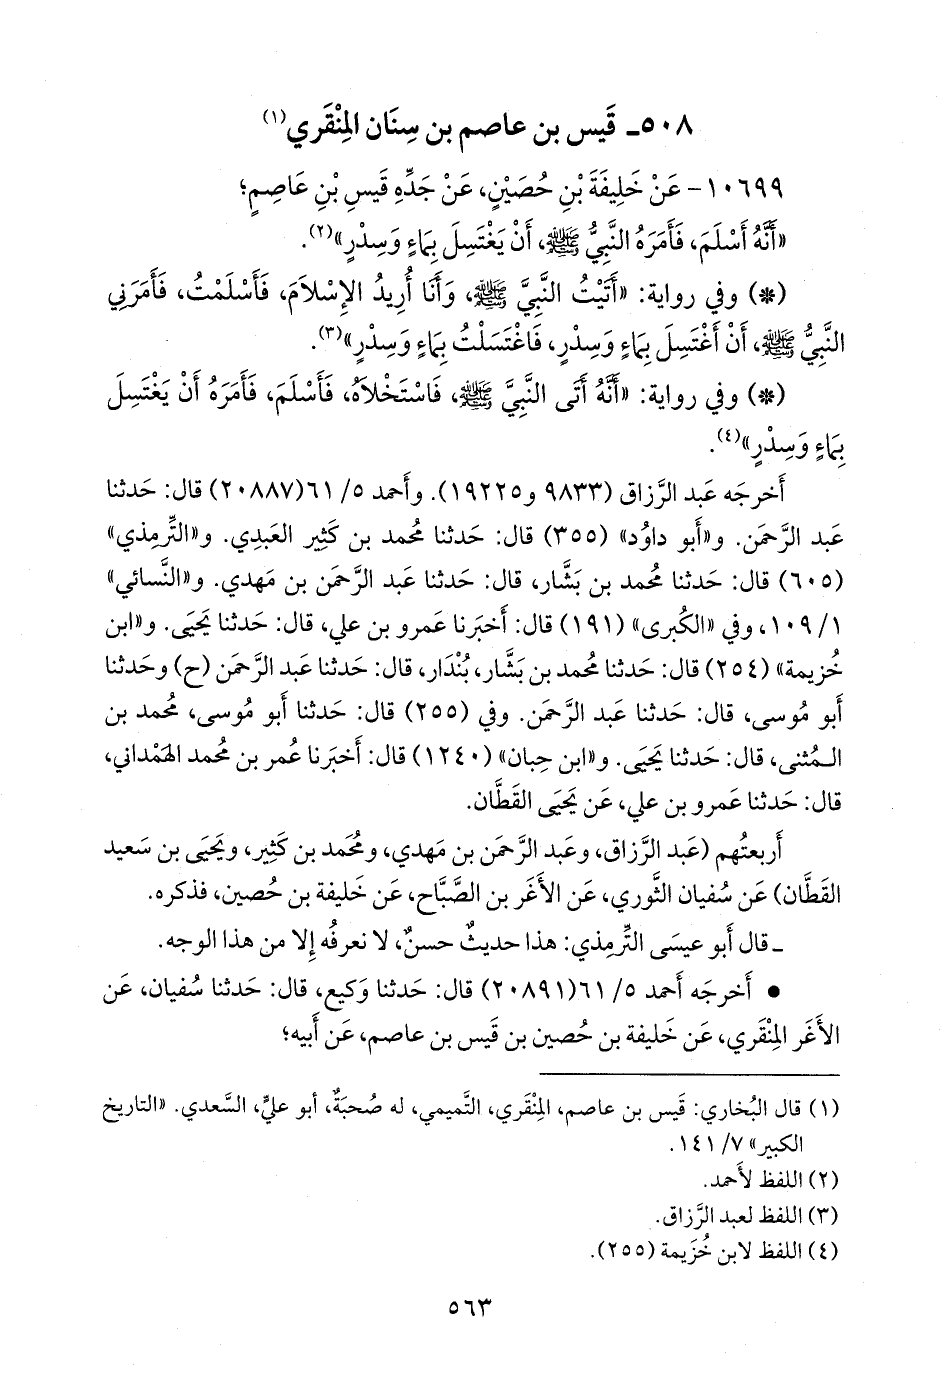 ٥٠٨ـ قَيس بن عاصم بن سِنَان المِنْقَري(١)
١٠٦٩٩- عَنْ خَلِيفَةَ بْنِ حُصَيْنٍ، عَنْ جَدِّهِ قَيسِ بْنِ عَاصِمٍ؛
«أَنَّهُ أَسْلَمَ، فَأَمَرَهُ النَّبِيُّ ﷺ، أَنْ يَغْتَسِلَ بِمَاءٍ وَسِدْرٍ»(٢).
(*) وفي رواية: «أَتَيْتُ النَّبِيَّ ﷺ، وَأَنَا أُرِيدُ الإِسْلاَمَ، فَأَسْلَمْتُ، فَأَمَرَنِي
النَّبِيُّ ﷺ، أَنْ أَغْتَسِلَ بِمَاءٍ وَسِدْرٍ، فَاغْتَسَلْتُ بِمَاءٍ وَسِدْرٍ»(٣).
(*) وفي رواية: «أَنَّهُ أَتَى النَّبِيَّ ﷺ، فَاسْتَخْلاَهُ، فَأَسْلَمَ، فَأَمَرَهُ أَنْ يَغْتَسِلَ
بِمَاءٍ وَسِدْرٍ»(٤).
أَخرجَه عَبد الرَّزاق (٩٨٣٣ و١٩٢٢٥). وأَحمد ٥/ ٦١(٢٠٨٨٧) قال: حَدثنا
عَبد الرَّحمَن. و«أَبو داوُد» (٣٥٥) قال: حَدثنا مُحمد بن كَثِير العَبدِي. و«التِّرمِذي»
(٦٠٥) قال: حَدثنا مُحمد بن بَشَّار، قال: حَدثنا عَبد الرَّحمَن بن مَهدي. و«النَّسائي»
١/ ١٠٩، وفي «الكُبرى» (١٩١) قال: أَخبَرنا عَمرو بن علي، قال: حَدثنا يَحيَى. و«ابن
خُزيمة» (٢٥٤) قال: حَدثنا مُحمد بن بَشَّار، بُنْدَار، قال: حَدثنا عَبد الرَّحمَن (ح) وحَدثنا
أَبو مُوسى، قال: حَدثنا عَبد الرَّحمَن. وفي (٢٥٥) قال: حَدثنا أَبو مُوسى، مُحمد بن
المُثنى، قال: حَدثنا يَحيَى. و«ابن حِبان» (١٢٤٠) قال: أَخبَرنا عُمر بن مُحمد الهَمْداني،
قال: حَدثنا عَمرو بن علي، عَن يَحيَى القَطَّان.
أَربعتُهم (عَبد الرَّزاق، وعَبد الرَّحمَن بن مَهدي، ومُحمد بن كَثِير، ويَحيَى بن سَعيد
القَطَّان) عَن سُفيان الثَّوري، عَن الأَغَر بن الصَّبَّاح، عَن خَليفة بن حُصين، فذكره.
ـ قال أَبو عيسَى التِّرمِذي: هذا حديثٌ حسنٌ، لا نعرفُه إلا من هذا الوجه.
• أَخرجَه أَحمد ٥/ ٦١(٢٠٨٩١) قال: حَدثنا وَكيع، قال: حَدثنا سُفيان، عَن
الأَغَر المِنْقَري، عَن خَليفة بن حُصين بن قَيس بن عاصم، عَن أَبيه؛
(١) قال البُخاري: قَيس بن عاصم، المِنْقَري، التَّميمي، له صُحبَةٌ، أبو عليٍّ، السَّعدي. «التاريخ
الكبير» ٧/ ١٤١.
(٢) اللفظ لأَحمد.
(٣) اللفظ لعبد الرَّزاق.
(٤) اللفظ لابن خُزَيمة (٢٥٥).
٥٦٣